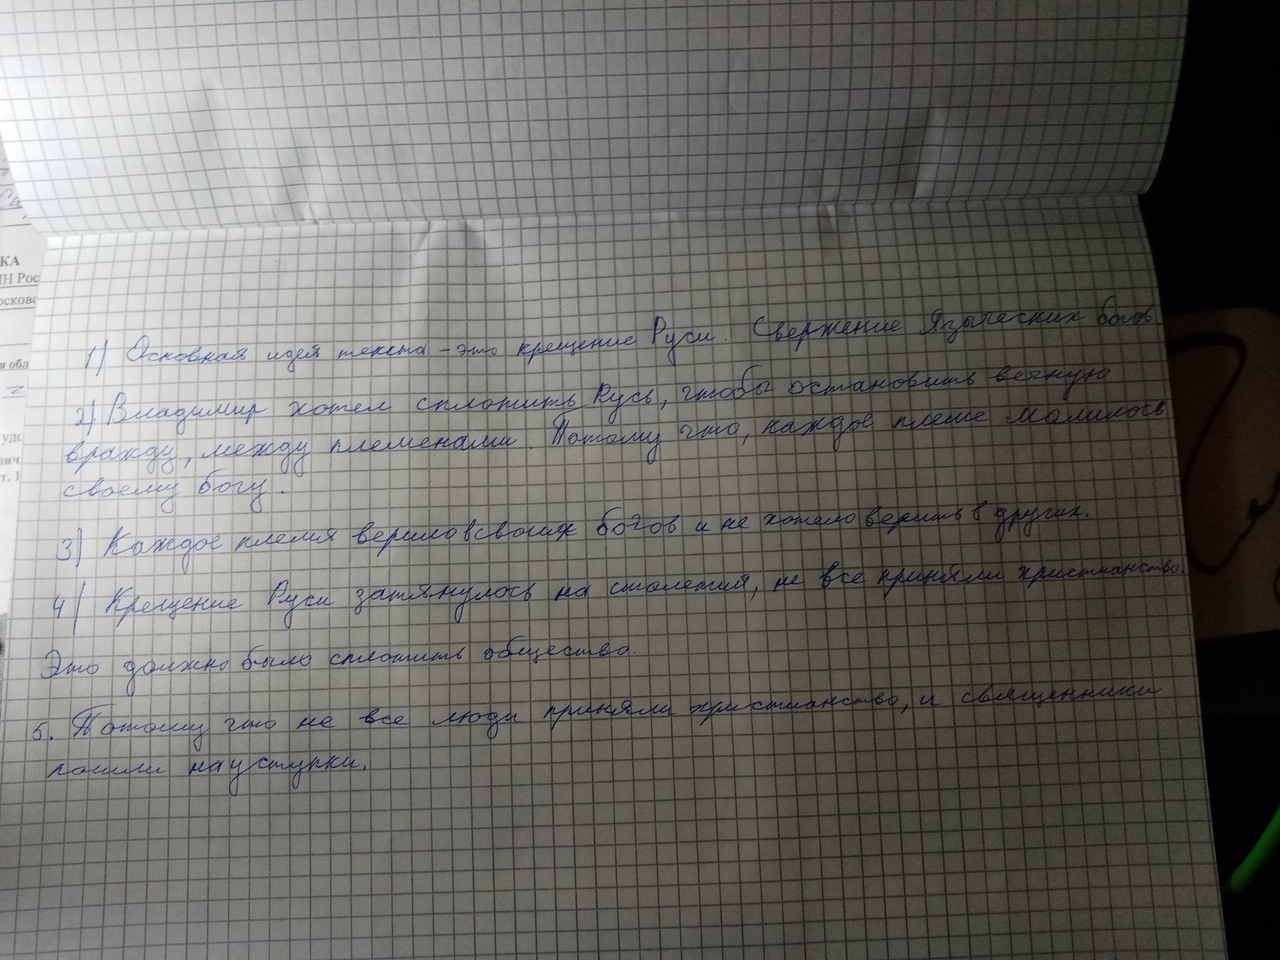 КА
1) Основная идея текста - это крещение Руси. Свержение Языческих богов
2) Владимир хотел сплотить Русь, чтобы остановить вечную
вражду, между племенами Потому что, каждое племе молилось
своему богу.
3) Каждое племя верило в своих богов и не хотело верить в других.
4) Крещение Руси затянулось на столетия, не все приняли христианство.
Это должно было сплотить общество.
5. Потому что не все люди приняли христианство, и священники
пошли на уступки.